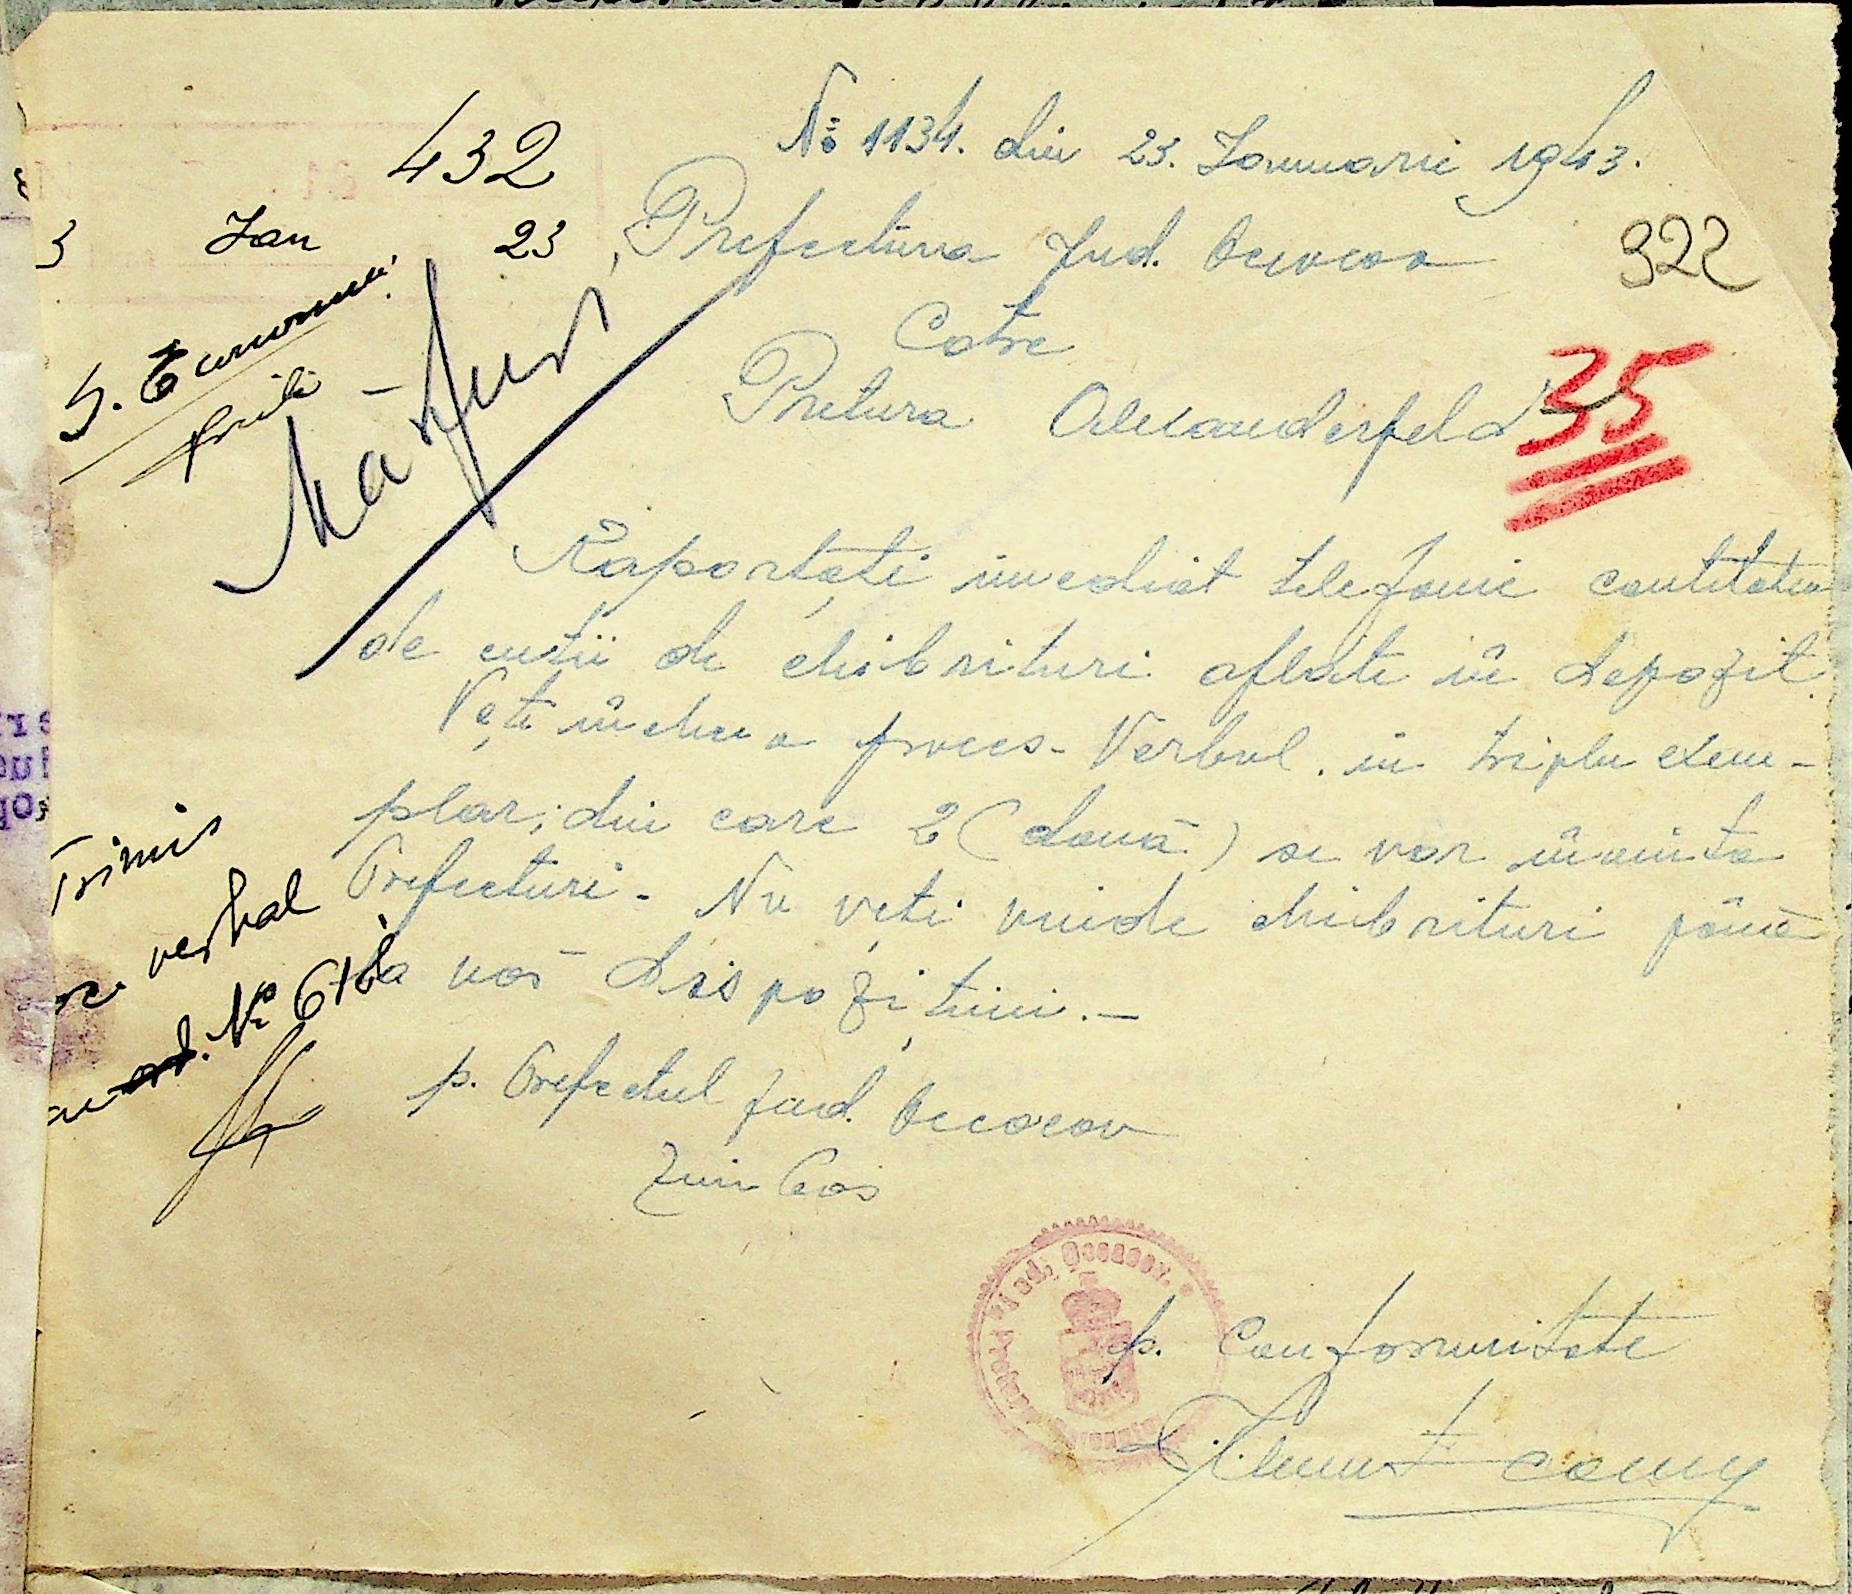 № 1134. din 23. Ianuarie 1943.
432
3 Ian 23
Prefectura Jud. Oceacov
322
S. Economic
Catre
Pretura Alexanderfeld
35
Raportați imediat telefonic cantitatea
de cutii de chibrituri aflate în depozit.
Veți încheia proces-Verbal. in triplu exem-
plar; din care 2 (două) se vor înainta
Prefecturi - Nu veți vinde chibrituri până
la noi dispozițiuni. -
Trimis
verbal
№ 618
p. Prefectul Jud. Oceacov
p. Conformitate